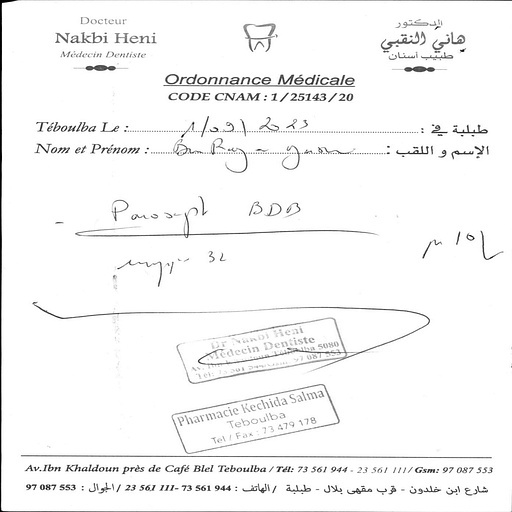 Docteur
Nakbi Heni
Médecin Dentiste
الدكتور
هاني النقبي
طبيب أسنان
Ordonnance Médicale
CODE CNAM : 1/25143/20
Téboulba Le : 1/09/2023 طبلبة في :
Nom et Prénom : Ben الإسم و اللقب :
- BDB
Dr Nakbi Heni
Médecin Dentiste
Pharmacie Kechida Salma
Teboulba
Tel / Fax : 73 479 178
Av.Ibn Khaldoun près de Café Blel Teboulba / Tél: 73 561 944 - 23 561 111 / Gsm: 97 087 553
شارع ابن خلدون - قرب مقهى بلال - طبلبة / الهاتف : 73 561 944 - 23 561 111 / الجوال : 97 087 553